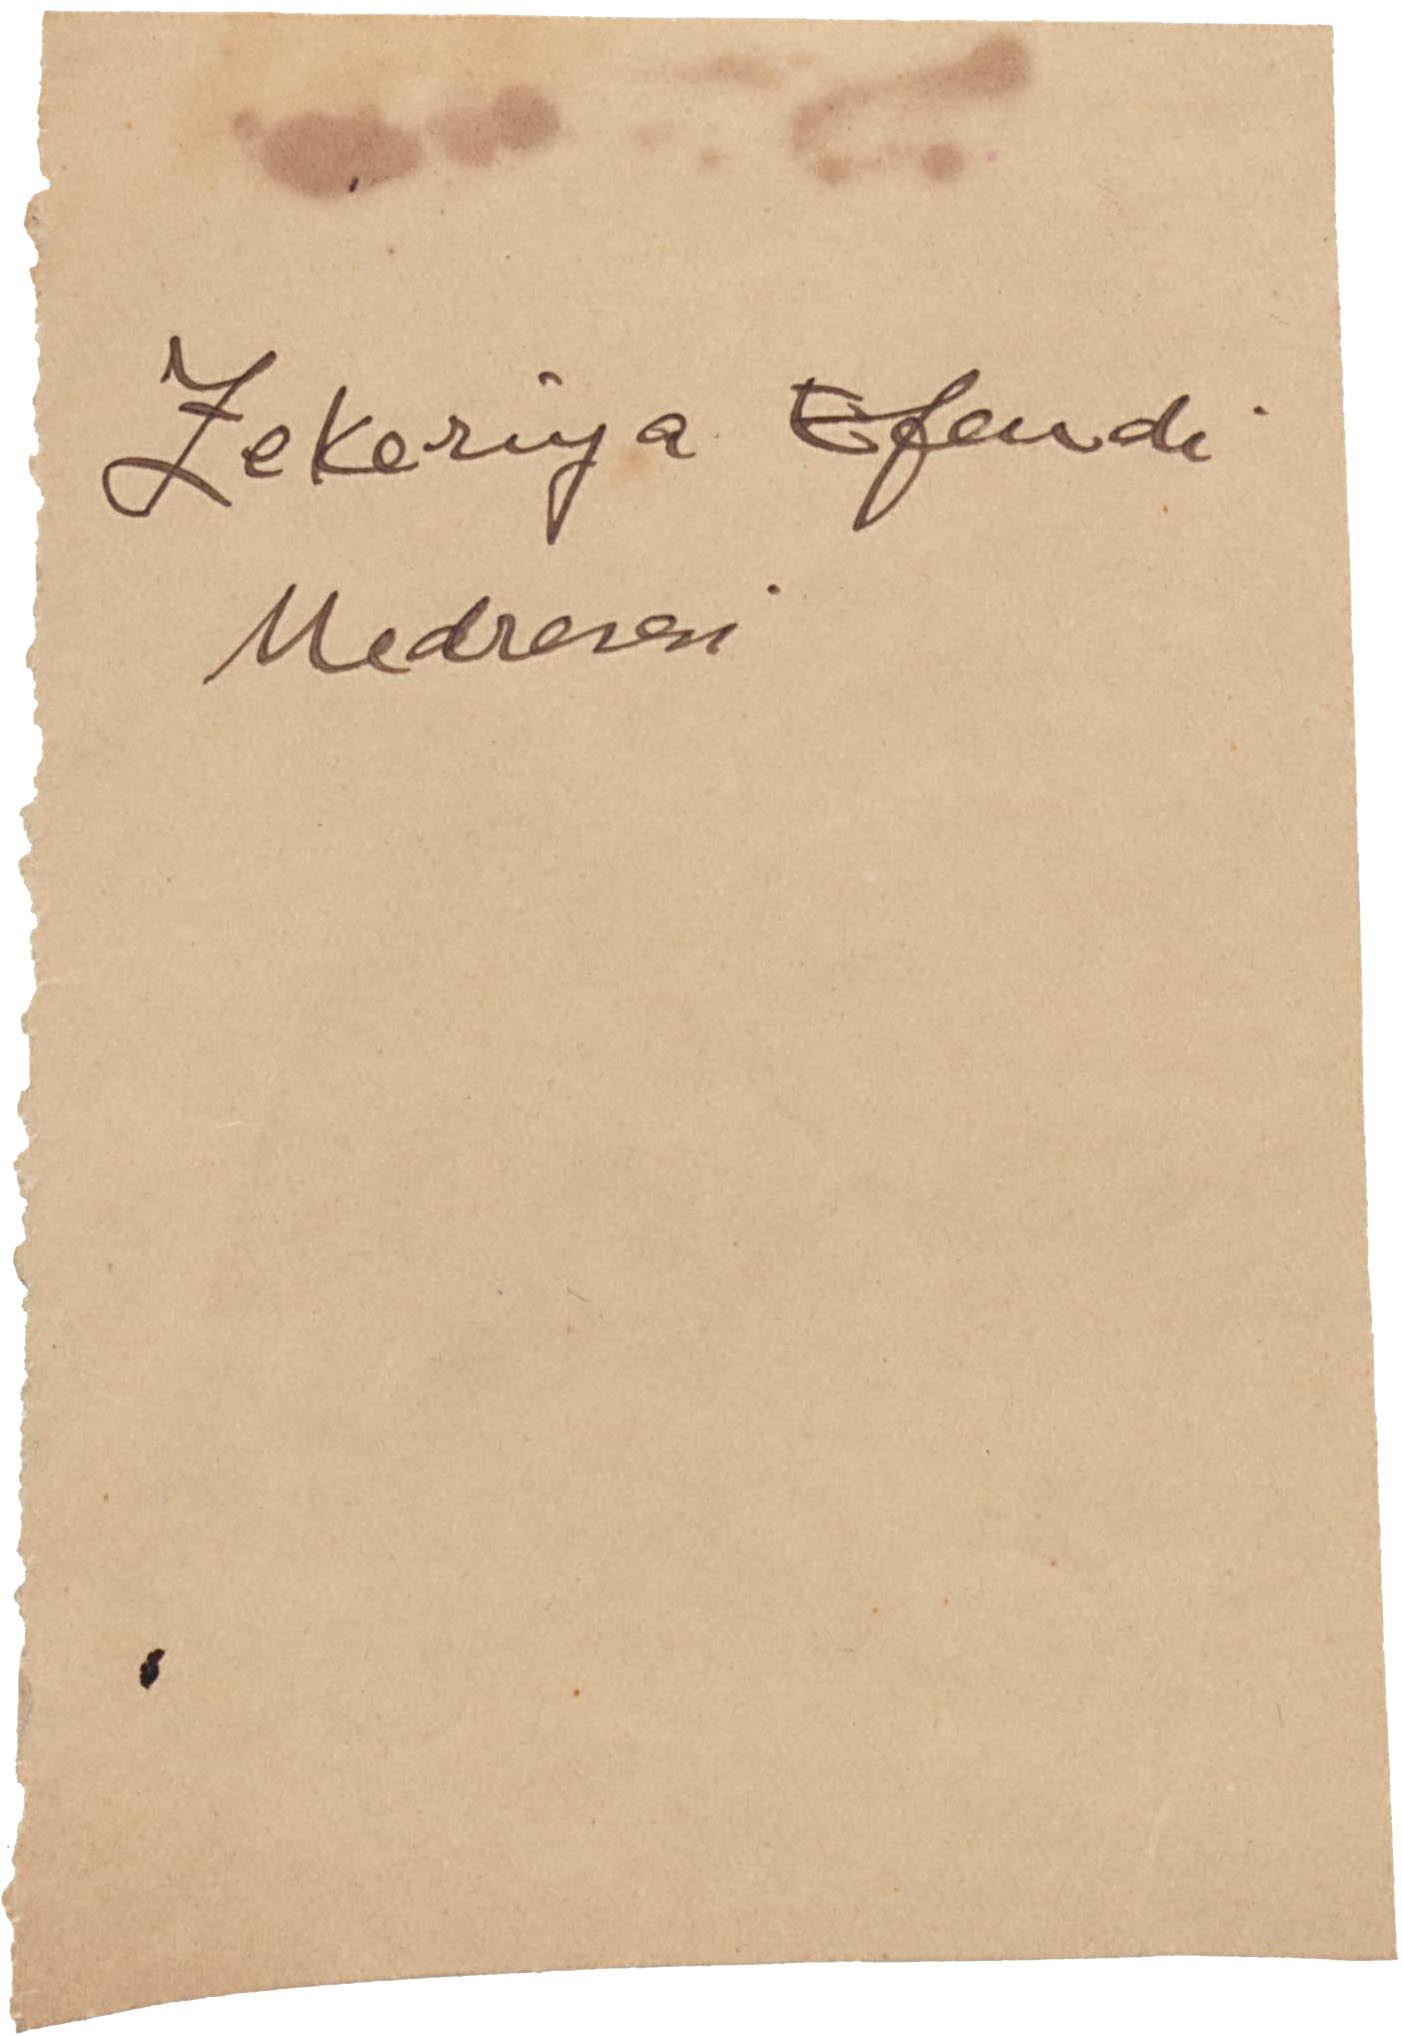 Zekeriya Efendi
Medresesi